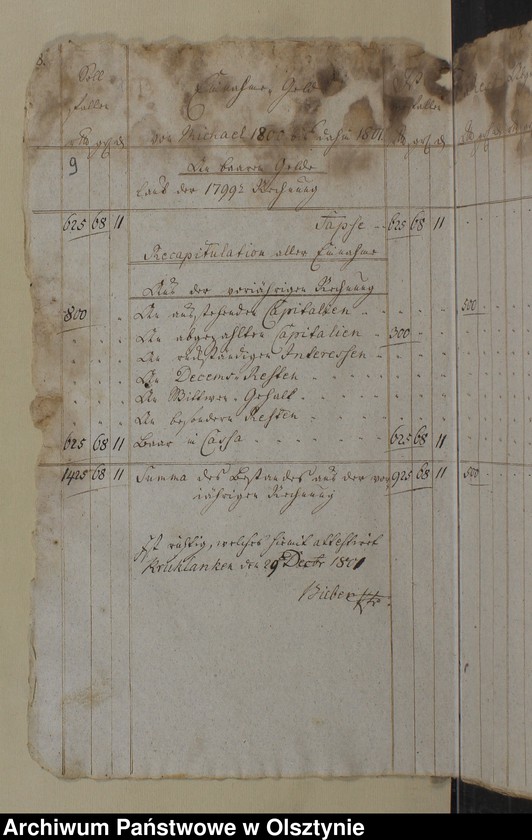 8.
Soll Einnahme Geld Ist
fallen fallen
von Michael 1800 bis dahin 1801
9 An baaren Gelde
laut der 1799r Rechnung
625 68 11 Fapse 625 68 11
Recapitulation aller Einnahme
Aus der vorjährigen Rechnung
800 An ausstehenden Capitalien 500
An abgezahlten Capitalien 300
An rückständigen Interessen
An Decems-Resten
An Wittwen-Gehalt
An besondern Resten
625 68 11 Baar in Cassa 625 68 11
1425 68 11 Summa des Bestandes aus der vor- 925 68 11 500
jährigen Rechnung
Ist richtig, welches hiemit attestirt
Kruklanken den 29 Decbr 1801
Bieber
Archiwum Państwowe w Olsztynie